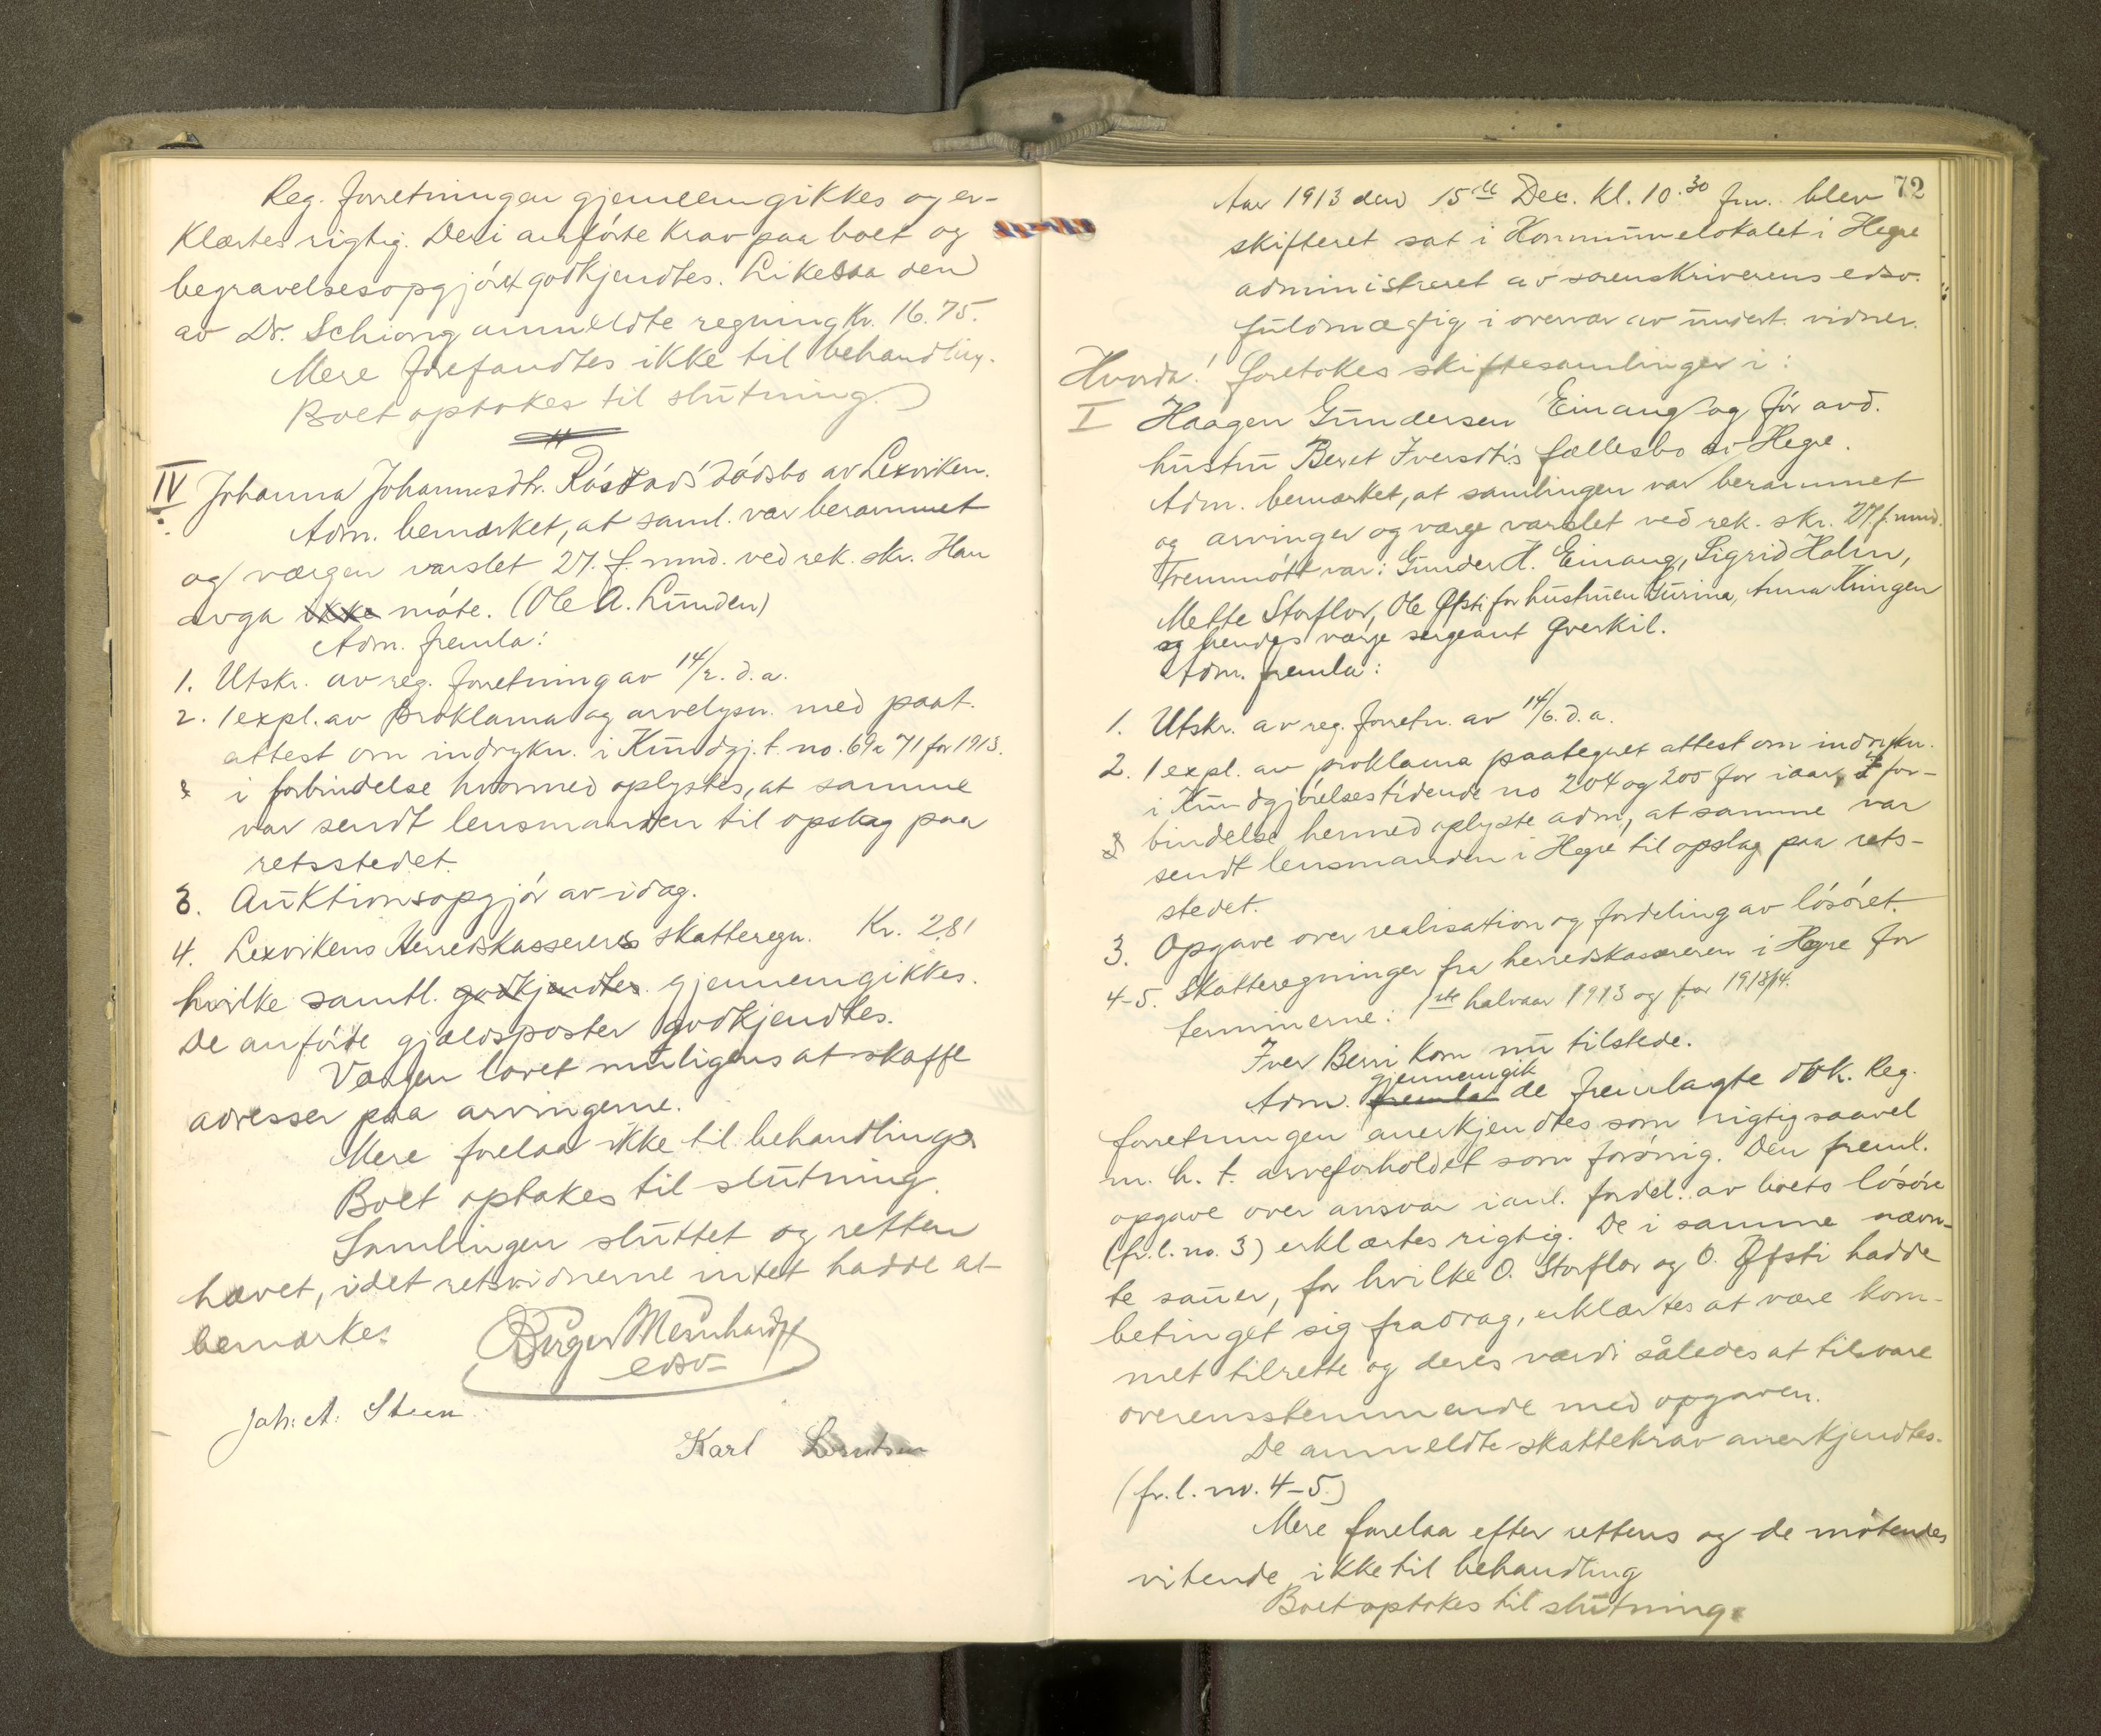 Reg. forretningen gjennemgikkes og er-
klærtes rigtig. De i anførte krav paa boet og
begravelsesopgjöret godkjendtes. Likesaa den
av Dr. Schiong anmeldte regning Kr. 16.75.
Mere forefandtes ikke til behandling.
Boet optokes til slutning.
IV Johanna Johannesdtr. Röstads dödsbo av Lexviken.
Adm. bemærket, at saml. var berammet
og værgen varslet 27. f. mnd. ved rek. skr. Han
avga ikke möte. (Ole A. Lunden)
Adm. fremla:
1. Utskr. av reg. forretning av 14/2. d. a.
2. 1 expl. av proklama og arvelysn. med paat.
attest om indrykn. i Kundgj. t. no. 69 a 71 for 1913.
i forbindelse hvormed oplystes, at samme
var sendt lensmanden til opslag paa
retsstedet.
3. Auktionsopgjör av idag.
4. Lexvikens Herredskasserers skatteregn. Kr. 2.81
hvilke samtl. godkjendtes. gjennemgikkes.
De anförte gjældsposter godkjendtes.
Værgen lovet muligens at skaffe
adresser paa arvingerne.
Mere forelaa ikke til behandling.
Boet optokes til slutning.
Samlingen sluttet og retten
hævet, idet retsvidnerne intet hadde at
bemærke.
Birger Meinhardt
edsv
Joh: A: Steen
Karl Berntsen
72
Aar 1913 den 15de Dec. kl. 10.30 fm. blev
skifteret sat i Kommunelokalet i Hegre
administreret av sorenskriverens edsv.
fuldmægtig i overvær av undert. vidner.
Hvorda! Foretokes skiftesamlinger i:
I Haagen Gundersen Einang og för avd.
hustru Beret Iversdtr's fællesbo i Hegre.
Adm. bemærket, at samlingen var berammet
og arvinger og værge varslet ved rek. skr. 27. f. mnd.
Fremmött var: Gunder H. Einang, Sigrid Holm,
Mette Storflor, Ole Öfsti for hustruen Gurina, Anna Kringen
og hendes værje sergeant Qverkil.
Adm. fremla:
1. Utskr. av reg. forretn. av 14/6. d. a.
2. 1 expl. av proklama paategnet attest om indrykn.
i Kundgjörelsestidende no 204 og 205 for iaar, I for-
bindelse hermed oplyste adm, at samme var
sendt lensmanden i Hegre til opslag paa rets-
stedet.
3. Opgave over realisation og fordeling av lösöret.
4-5. Skatteregninger fra herredskassereren i Hegre for
terminerne: 1ste halvaar 1913 og for 1913/14.
Iver Berri kom nu tilstede.
gjennemgik
Adm. fremla de fremlagte dok. Reg.
forretningen anerkjendtes som rigtig saavel
m. h. t. arveforholdet som forövrig. Den freml.
opgave over ansvar i anl. fordel. av boets lösöre
(fr. l. no. 3) erklærtes rigtig. De i samme nævn-
te sauer, for hvilke O. Storflor og O. Öfsti hadde
betinget sig fradrag, erklærtes at være kom-
met tilrette og deres værdi således at tilsvare
overensstemmende med opgaven.
De anmeldte skattekrav anerkjendtes.
(fr. l. no. 4-5)
Mere forelaa efter rettens og de mötendes
vitende ikke til behandling
Boet optokes til slutning.